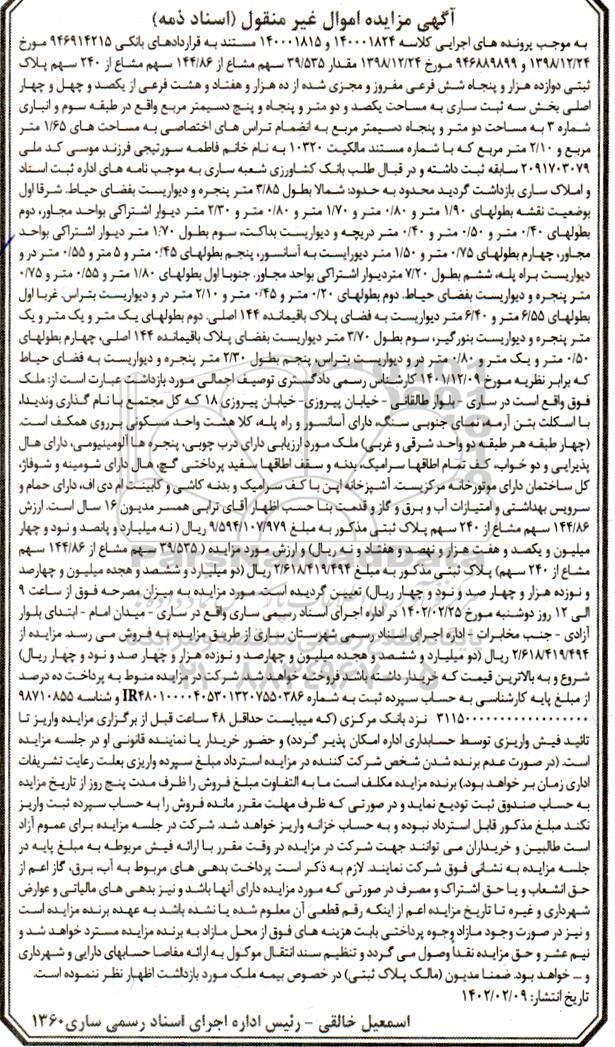 آگهی مزایده اموال غیر منقول (اسناد ذمه)
به موجب پرونده های اجرایی کلاسه ۱۴۰۰۰۱۸۲۴ و ۱۴۰۰۰۱۸۱۵ مستند به قراردادهای بانکی ۹۴۶۹۱۴۲۱۵ مورخ
۱۳۹۸/۱۲/۲۴ و ۹۴۶۸۸۹۸۹۹ مورخ ۱۳۹۸/۱۲/۲۴ مقدار ۳۹/۵۳۵ سهم مشاع از ۱۴۴/۸۶ سهم مشاع از ۲۴۰ سهم پلاک
ثبتی دوازده هزار و پنجاه شش فرعی مفروز و مجزی شده از ده هزار و هفتاد و هشت فرعی از یکصد و چهل و چهار
اصلی بخش سه ثبت ساری به مساحت یکصد و دو متر و پنجاه و پنج دسیمتر مربع واقع در طبقه سوم و انباری
شماره ۳ به مساحت دو متر و پنجاه دسیمتر مربع به انضمام تراس های اختصاصی به مساحت های ۱/۶۵ متر
مربع و ۲/۱۰ متر مربع که با شماره مستند مالکیت ۱۰۳۲۰ به نام خانم فاطمه سورتیجی فرزند موسی کد ملی
۲۰۹۱۷۰۳۰۷۹ سابقه ثبت داشته و در قبال طلب بانک کشاورزی شعبه ساری به موجب نامه های اداره ثبت اسناد
و املاک ساری بازداشت گردید محدود به حدود: شمالا بطول ۳/۸۵ متر پنجره و دیواریست بفضای حیاط. شرقا اول
بوضعیت نقشه بطولهای ۱/۹۰ متر و ۰/۸۰ متر و ۱/۷۰ متر و ۰/۸۰ متر و ۲/۳۰ متر دیوار اشتراکی بواحد مجاور، دوم
بطولهای ۰/۴۰ متر و ۰/۵۰ متر و ۰/۴۰ متر دریچه و دیواریست بداکت، سوم بطول ۱/۷۰ متر دیوار اشتراکی بواحد
مجاور، چهارم بطولهای ۰/۷۵ متر و ۱/۵۰ متر دیورایست به آسانسور، پنجم بطولهای ۰/۴۵ متر و ۵ متر و ۰/۵۵ متر در و
دیواریست براه پله، ششم بطول ۷/۲۰ متردیوار اشتراکی بواحد مجاور. جنوبا اول بطولهای ۱/۸۰ متر و ۰/۵۵ متر و ۰/۷۵
متر پنجره و دیواریست بفضای حیاط. دوم بطولهای ۰/۲۰ متر و ۰/۴۵ متر و ۲/۱۰ متر در و دیواریست بتراس. غربا اول
بطولهای ۶/۵۵ متر و ۶/۴۰ متر دیواریست به فضای پلاک باقیمانده ۱۴۴ اصلی. دوم بطولهای یک متر و یک متر و یک
متر پنجره و دیواریست بنورگیر، سوم بطول ۳/۷۰ متر دیواریست بفضای پلاک باقیمانده ۱۴۴ اصلی، چهارم بطولهای
۰/۵۰ متر و یک متر و ۰/۸۰ متر در و دیواریست بتراس، پنجم بطول ۲/۳۰ متر پنجره و دیواریست به فضای حیاط
که برابر نظریه مورخ ۱۴۰۱/۱۲/۰۹ کارشناس رسمی دادگستری توصیف اجمالی مورد بازداشت عبارت است از: ملک
فوق واقع است در ساری - بلوار طالقانی - خیابان پیروزی- خیابان پیروزی ۱۸ که کل مجتمع با نام گذاری وندیدا،
با اسکلت بتن آرمه، نمای جنوبی سنگ، دارای آسانسور و راه پله، کلا هشت واحد مسکونی برروی همکف است.
(چهار طبقه هر طبقه دو واحد شرقی و غربی) ملک مورد ارزیابی دارای درب چوبی، پنجره ها آلومینیومی، دارای هال
پذیرایی و دو خواب، کف تمام اطاقها سرامیک، بدنه و سقف اطاقها سفید پرداختی گچ، هال دارای شومینه و شوفاژ،
کل ساختمان دارای موتورخانه مرکزیست. آشپزخانه اپن با کف سرامیک و بدنه کاشی و کابینت ام دی اف، دارای حمام و
سرویس بهداشتی و امتیازات آب و برق و گاز و قدمت بنا حسب اظهار آقای ترابی همسر مدیون ۱۶ سال است. ارزش
۱۴۴/۸۶ سهم مشاع از ۲۴۰ سهم پلاک ثبتی مذکور به مبلغ ۹/۵۹۴/۱۰۷/۹۷۹ ریال ( نه میلیارد و پانصد و نود و چهار
میلیون و یکصد و هفت هزار و نهصد و هفتاد و نه ریال) و ارزش مورد مزایده ( ۳۹/۵۳۵ سهم مشاع از ۱۴۴/۸۶ سهم
مشاع از ۲۴۰ سهم) پلاک ثبتی مذکور به مبلغ ۲/۶۱۸/۴۱۹/۴۹۴ ریال (دو میلیارد و ششصد و هجده میلیون و چهارصد
و نوزده هزار و چهار صد و نود و چهار ریال) تعیین گردیده است. مورد مزایده به میزان مصرحه فوق از ساعت ۹
الی ۱۲ روز دوشنبه مورخ ۱۴۰۲/۰۲/۲۵ در اداره اجرای اسناد رسمی ساری واقع در ساری - میدان امام - ابتدای بلوار
آزادی - جنب مخابرات - اداره اجرای اسناد رسمی شهرستان ساری از طریق مزایده به فروش می رسد. مزایده از
۲/۶۱۸/۴۱۹/۴۹۴ ریال (دو میلیارد و ششصد و هجده میلیون و چهارصد و نوزده هزار و چهار صد و نود و چهار ریال)
شروع و به بالاترین قیمت که خریدار داشته باشد فروخته خواهد شد شرکت در مزایده منوط به پرداخت ده درصد
از مبلغ پایه کارشناسی به حساب سپرده ثبت به شماره IR۴۸۰۱۰۰۰۰۴۰۵۳۰۱۳۲۰۷۵۵۰۳۸۶ و شناسه ۹۸۷۱۰۸۵۵
۳۱۱۵۰۰۰۰۰۰۰۰۰۰۰۰۰۰۰۰۰۰ نزد بانک مرکزی (که میبایست حداقل ۴۸ ساعت قبل از برگزاری مزایده واریز تا
تائید فیش واریزی توسط حسابداری اداره امکان پذیر گردد) و حضور خریدار یا نماینده قانونی او در جلسه مزایده
است. (در صورت عدم برنده شدن شخص شرکت کننده در مزایده استرداد مبلغ سپرده واریزی بعلت رعایت تشریفات
اداری زمان بر خواهد بود.) برنده مزایده مکلف است ما به التفاوت مبلغ فروش را ظرف مدت پنج روز از تاریخ مزایده
به حساب صندوق ثبت تودیع نماید و در صورتی که ظرف مهلت مقرر مانده فروش را به حساب سپرده ثبت واریز
نکند مبلغ مذکور قابل استرداد نبوده و به حساب خزانه واریز خواهد شد. شرکت در جلسه مزایده برای عموم آزاد
است طالبین و خریداران می توانند جهت شرکت در مزایده در وقت مقرر با ارائه فیش مربوطه به مبلغ پایه در
جلسه مزایده به نشانی فوق شرکت نمایند. لازم به ذکر است پرداخت بدهی های مربوط به آب، برق، گاز اعم از
حق انشعاب و یا حق اشتراک و مصرف در صورتی که مورد مزایده دارای آنها باشد و نیز بدهی های مالیاتی و عوارض
شهرداری و غیره تا تاریخ مزایده اعم از اینکه رقم قطعی آن معلوم شده یا نشده باشد به عهده برنده مزایده است
و نیز در صورت وجود مازاد وجوه پرداختی بابت هزینه های فوق از محل مازاد به برنده مزایده مسترد خواهد شد و
نیم عشر و حق مزایده نقداً وصول می گردد و تنظیم سند انتقال موکول به ارائه مفاصا حسابهای دارایی و شهرداری
و ... خواهد بود. ضمنا مدیون (مالک پلاک ثبتی) در خصوص بیمه ملک مورد بازداشت اظهار نظر ننموده است.
تاریخ انتشار: ۱۴۰۲/۰۲/۰۹
اسمعیل خالقی - رئیس اداره اجرای اسناد رسمی ساری۱۳۶۰